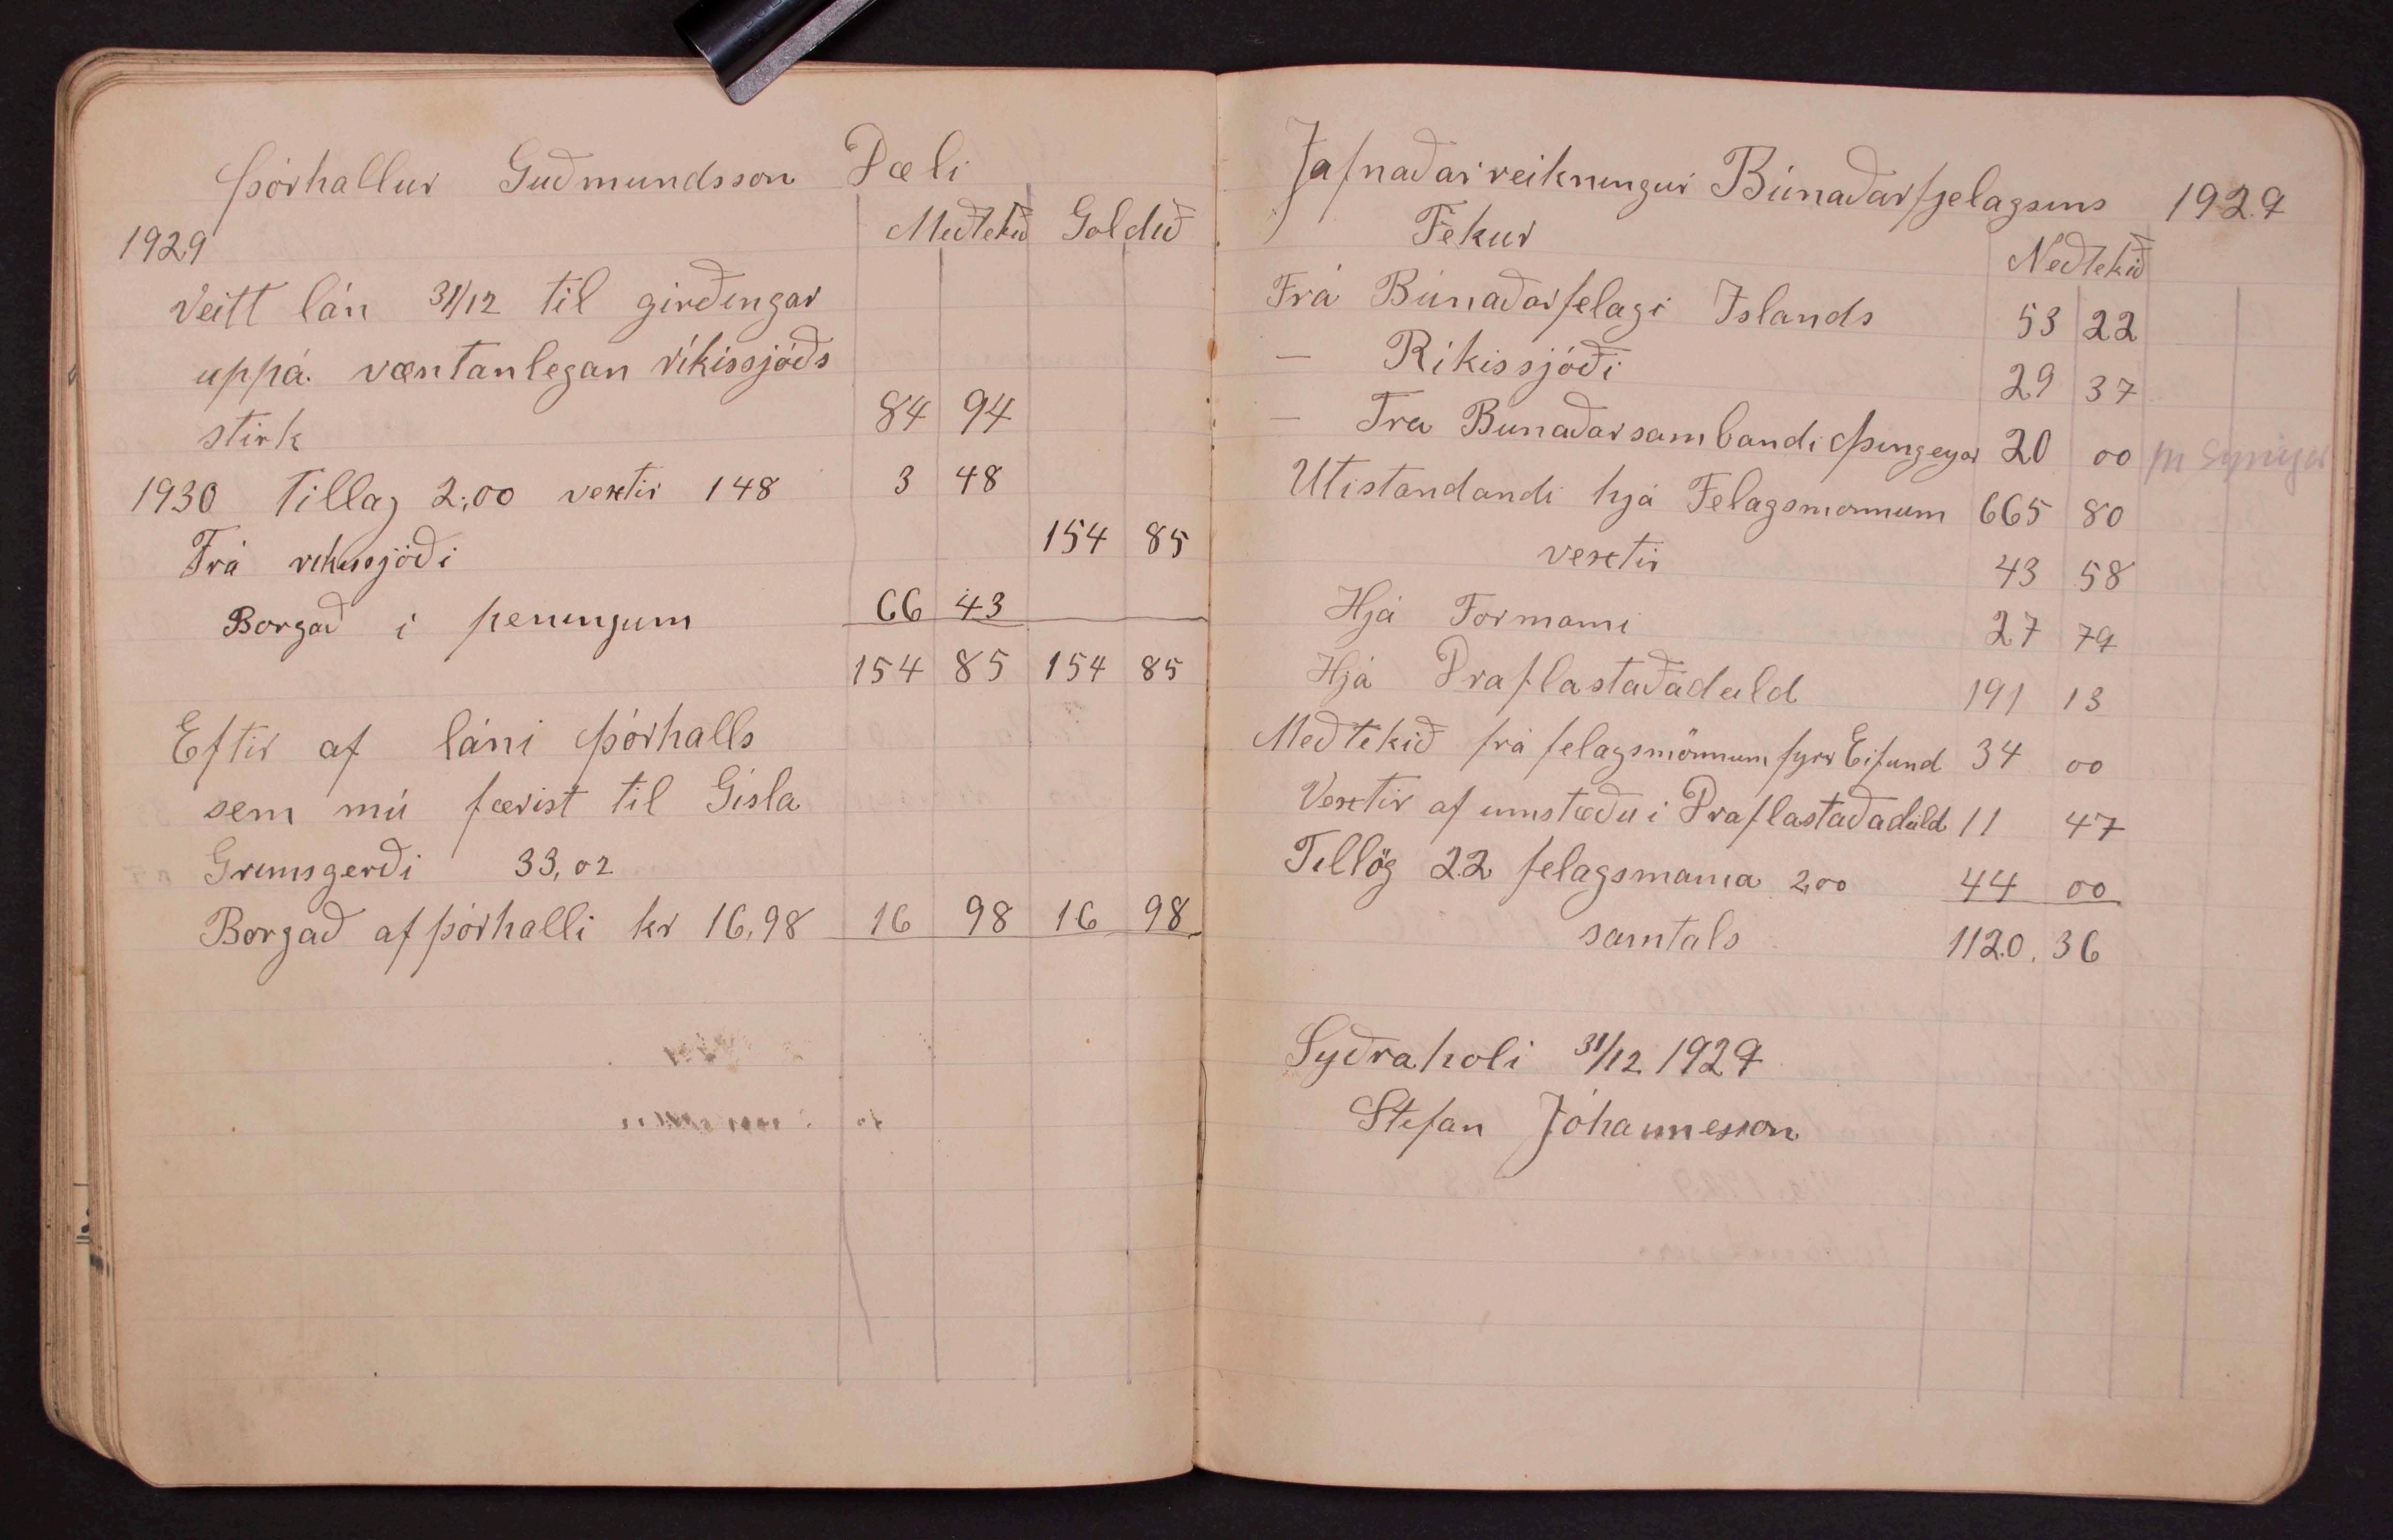 Þórhallur Guðmundsson Dæli
1929 Meðtekið Goldið
Veitt lán 31/12 til girðingar
uppá væntanlegan ríkissjóðs
stirk 84 94
1930 Tillag 2,00 vextir 148 3 48
Frá rikissjóði 154 85
Borgað i peningum 66 43
154 85 154 85
Eftir af láni Þórhalls
sem nú færist til Gisla
Grimsgerði 33,02
Borgað af þórhalli kr 16,98 16 98 16 98
Jafnaðarreikningur Búnaðarfjelagsins 1929
Tekur Meðtekið
Frá Búnaðarfelagi Islands 53 22
— Ríkissjóði 29 37
— Fra Bunaðarsambandi Þingeyar 20 00
Utistandandi hjá Felagsmonnum 665 80
vextir 43 58
Hjá Formanni 27 79
Hjá Draflastaðadeild 191 13
Meðtekið frá felagsmönnum fyrir 34 00
Vextir af innstæðu i Draflastaðadeild 11 47
Tillög 22 felagsmanna 2,00 44 00
samtals 1120.36
Syðraholi 31/12 1929
Stefan Jóhannesson